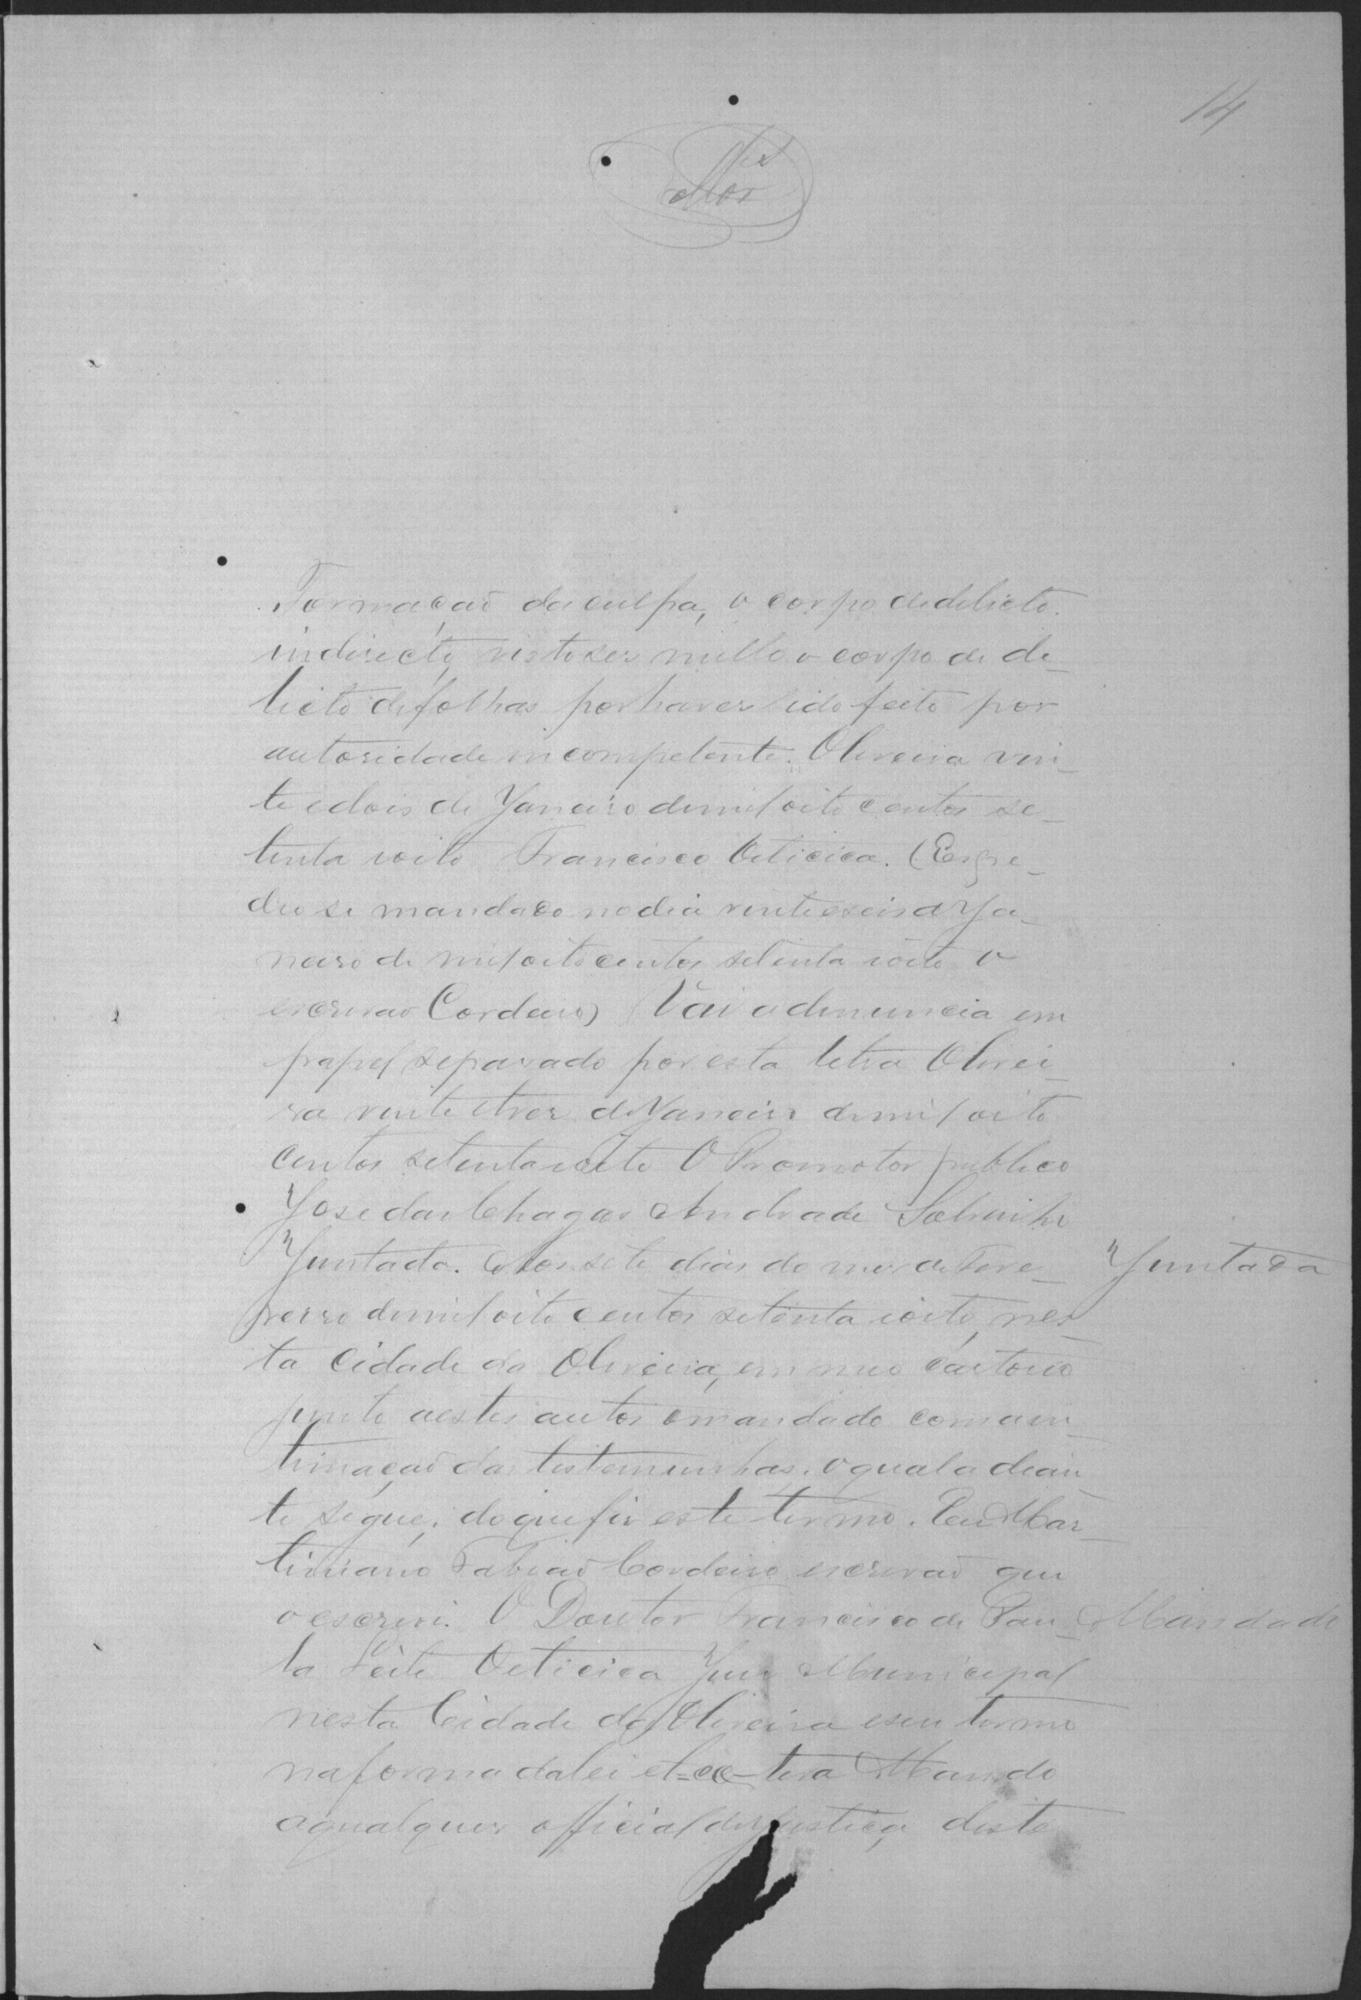 14
Formação da culpa, o corpo de delicto
indirecto, visto ser nullo o corpo de de-
licto de folhas por haver sido feito por
autoridade incompetente. Oliveira vin-
te e dois de Janeiro de mil oito centos se-
tenta e oito Francisco Oiticica. (Expe-
diu se mandado no dia vinte e seis d Ja-
neiro de mil oito centos setenta e oito o
escrivão Cordeiro) Vai a denuncia em
papel separado por esta letra Olivei-
ra vinte e tres de Janeiro de mil oito
centos setenta e oito O Promotor publico
Jose das Chagas Andrade Sobrinho
Juntada. Aos sete dias do mes de Feve-
Juntada
reiro de mil oito centos setenta e oito, nes-
ta Cidade da Oliveira, em meo Cartorio
junto a estes autos o mandado com a in-
timação das testemunhas. o qual a dian-
te segue, do que fiz este termo. Eu Mar-
tiniano Fabião Cordeiro escrivão que
o escrevi. O Doutor Francisco de Pau-
Mandado
la Leite Oiticica Juiz Municipal
nesta Cidade da Oliveira e seu termo
na forma da lei et-cetera Mando
a qualquer official de justiça deste